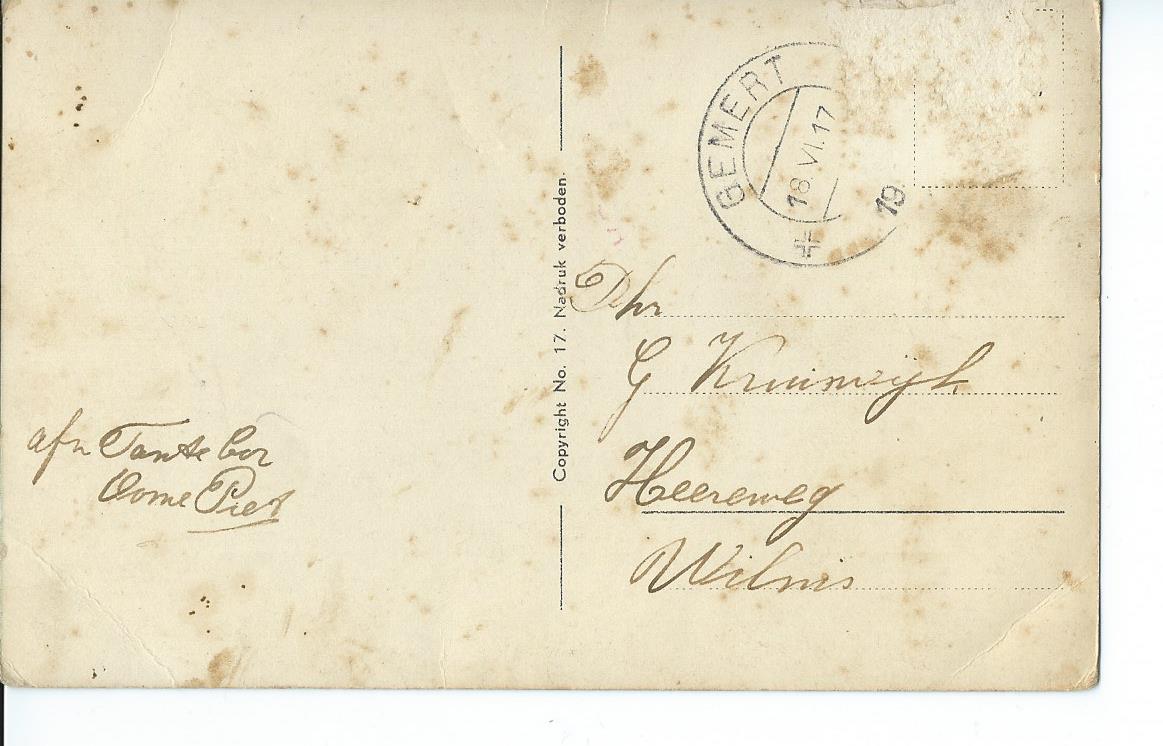 GEMERT
18 VI.17
19
Copyright No. 17. Nadruk verboden.
Dhr
G Kruinwijk
Heereweg
Wilnis
afz Tante Cor
Oome Piet